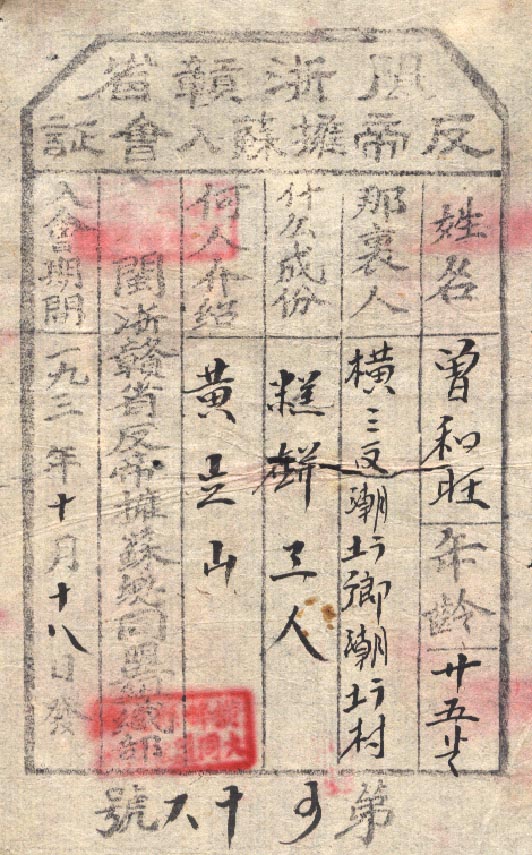 閩浙贛省
反帝擁蘇入會証
姓名 曾和旺 年齡 廿五岁
那裏人 橫 反 潮 村
什么成份 糕餅工人
何人介绍 黃 山
閩浙贛省反帝擁蘇 同盟組織部
入會期間 一九三 年十月十八日發
第 十六號